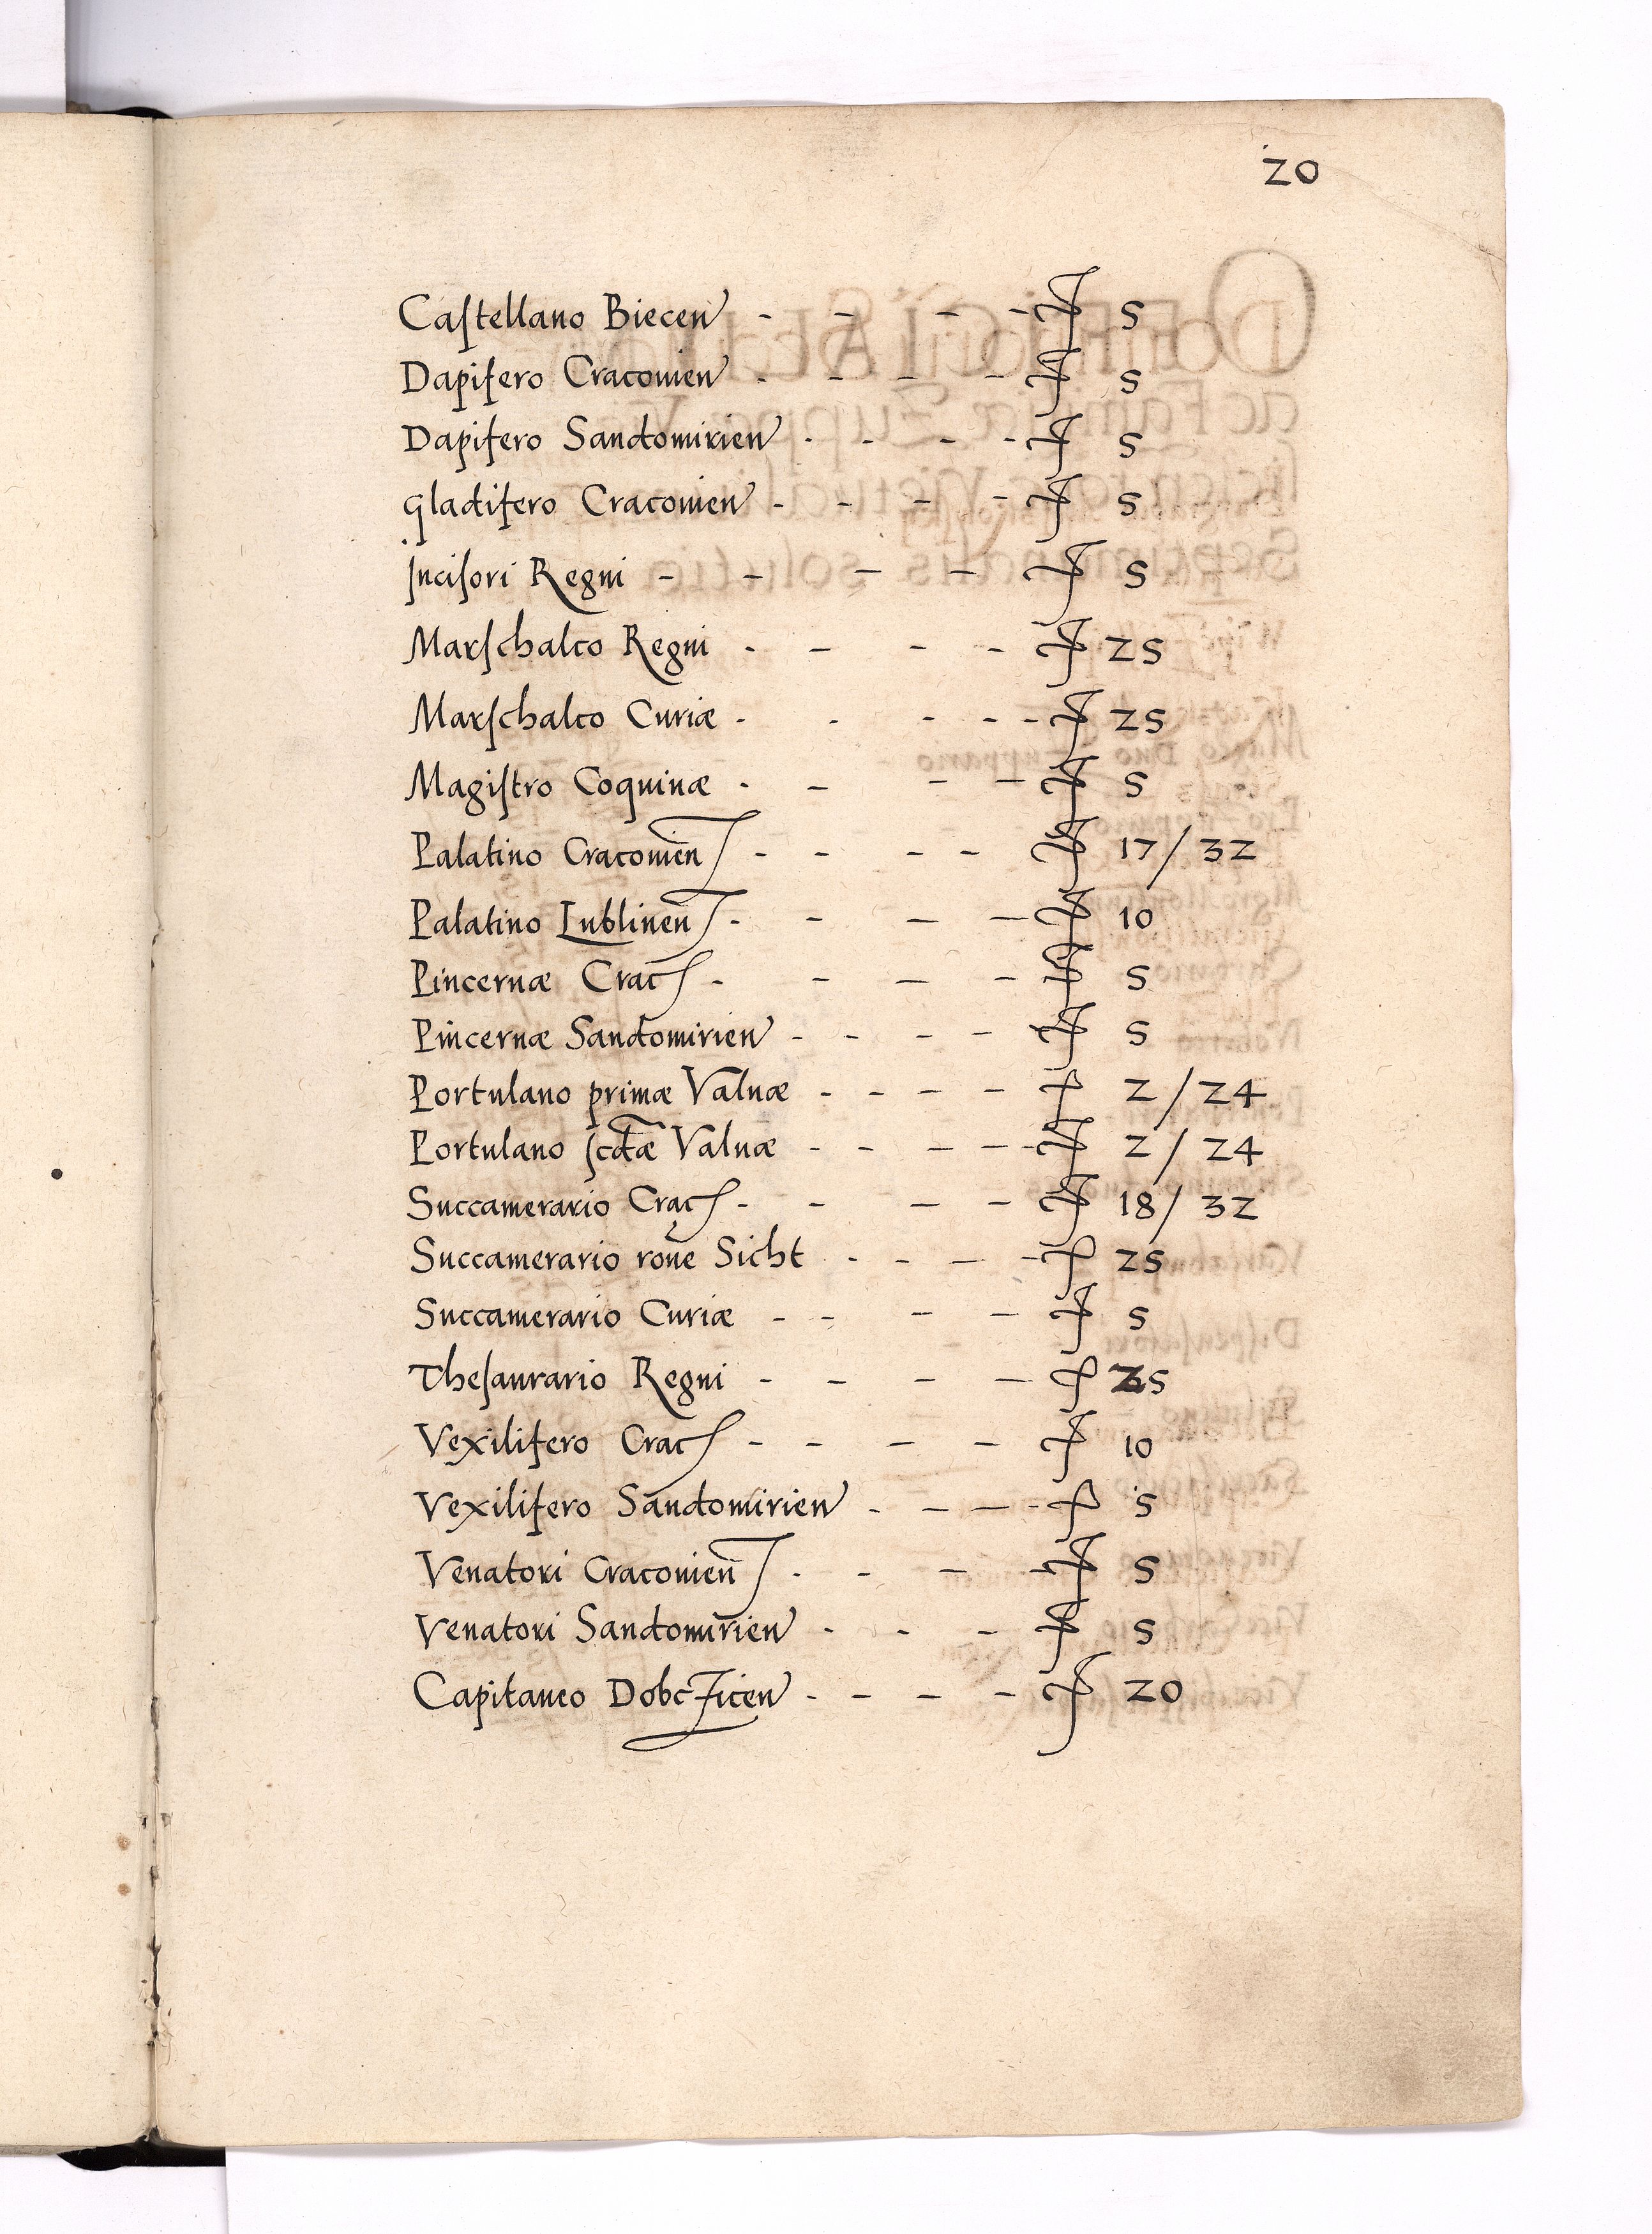 20
Castellano Biecen - - - - ƒ 5
Dapifero Cracovien - - - - ƒ 5
Dapifero Sandomirien - - - - ƒ 5
Gladifero Cracovien - - - - ƒ 5
Incisori Regni - - - - ƒ 5
Marschalco Regni - - - - ƒ 25
Marschalco Curiæ - - - - - ƒ 25
Magistro Coquinæ - - - - ƒ 5
Palatino Cracovien - - - - ƒ 17/32
Palatino Lublinen - - - - ƒ 10
Pincernæ Crac - - - - ƒ 5
Pincernæ Sandomirien - - - - ƒ 5
Portulano primæ Valuæ - - - - ƒ 2/24
Portulano scdæ Valuæ - - - - ƒ 2/24
Succamerario Crac - - - - ƒ 18/32
Succamerario rone Sicht - - - - ƒ 25
Succamerario Curiæ - - - - ƒ 5
Thesaurario Regni - - - - ƒ 25
Vexilifero Crac - - - - ƒ 10
Vexilifero Sandomirien - - - - ƒ 5
Venatori Cracovien - - - - ƒ 5
Venatori Sandomirien - - - ƒ 5
Capitaneo Dobczicen - - - - ƒ 20